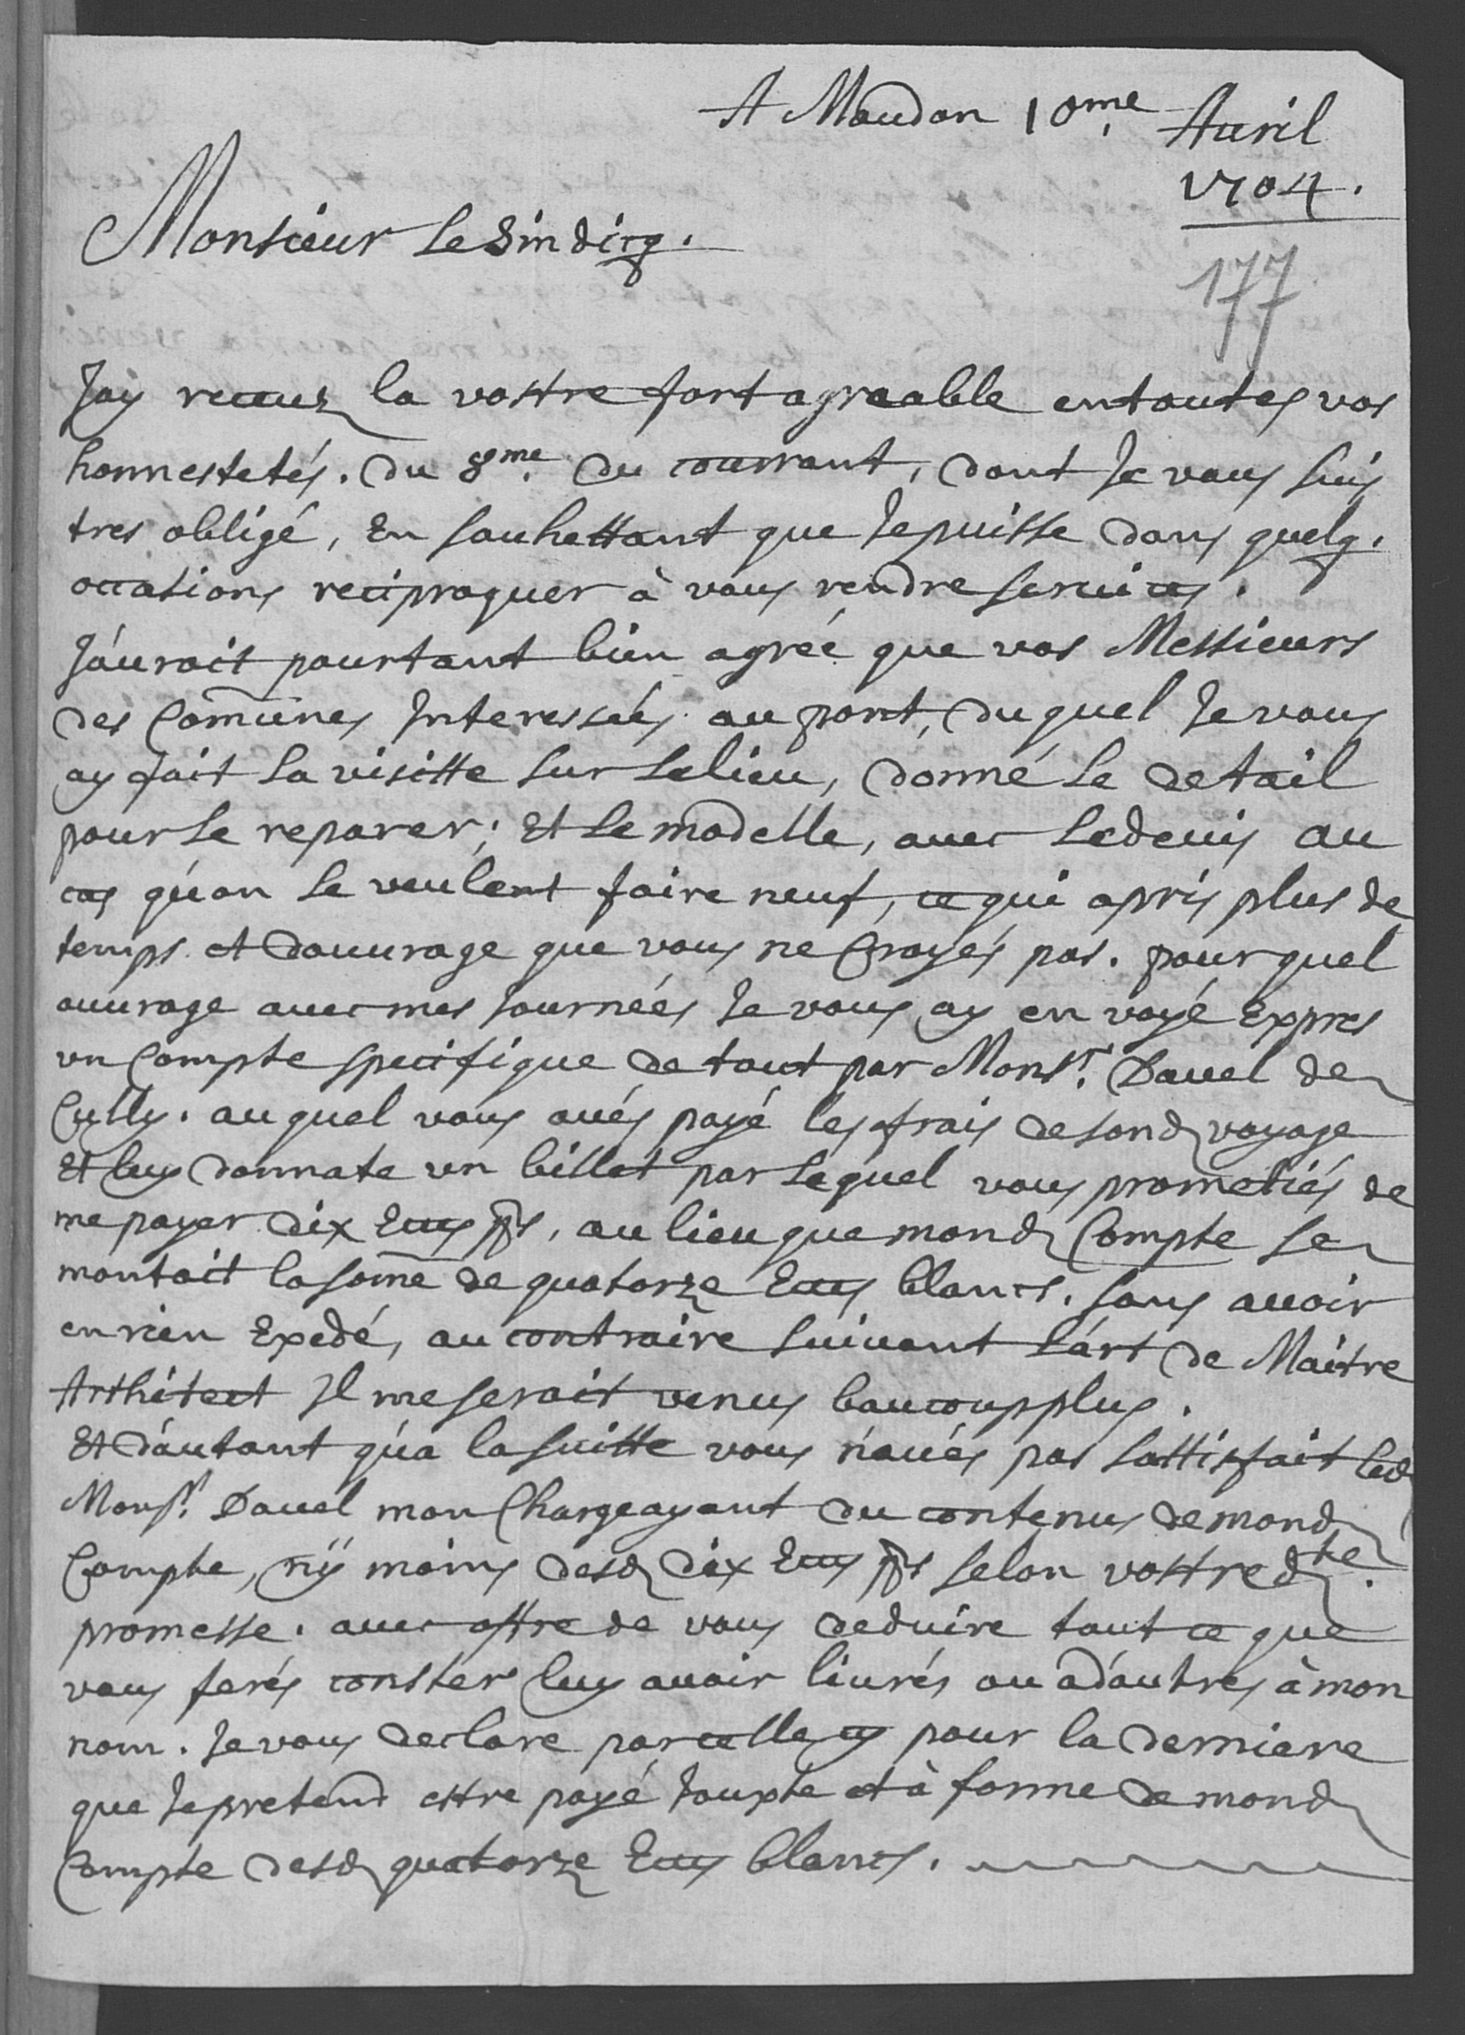 A Moudon 10me Auril
1704.
177
Monsieur le Sindicq.
Jay receuz la vostre fort agreable en toutes vos
honnestetés. du 8me. du courrant, dont Je vous suis
tres obligé, En souhettant que Je puisse dans quelq.
occations reciproquer à vous rendre services.
J'áurait pourtant bien agréé que vos Messieurs
des Comūnes Interessées au pont, du quel Je vous
ay fait la visitte sur le lieu, donné le detail
pour le reparer; Et le modelle, avec le devis au
cas qu'on le veulent faire neuf, ce qui a pris plus de
temps et d'ouvrage que vous ne Croyés pas. pour quel
ouvrage avec mes Journées Je vous ay en voyé Expres
vn Compte specifique de tout par Monsr. Davel de
Cully. au quel vous avés payé les frais de sond voyage
Et luy donnate vn billet par lequel vous prometiés de
me payer dix Ecus pts, au lieu que mond Compte se
montoit la some de quatorze Ecus blancs. sans avoir
en rien Exedé, au contraire suivant l'árt de Maitre
Arthitect Il me seroit venus baucoup plus.
Et d'áutant qu'a la suitte vous n'avés pas sattisfait led
Monsr. Davel mon Charge ayant du contenus de mond
Compte, nÿ moins desd dix Ecus pts selon vostre dte.
promesse. avec offre de vous deduire tout ce que
vous ferés conster luy avoir livrés ou a d'áutres à mon
nom. Je vous declare par celle cy pour la derniere
que Je pretend ettre payé Jouxte et à forme de mond
Compte desd quatorze Ecus blancs.